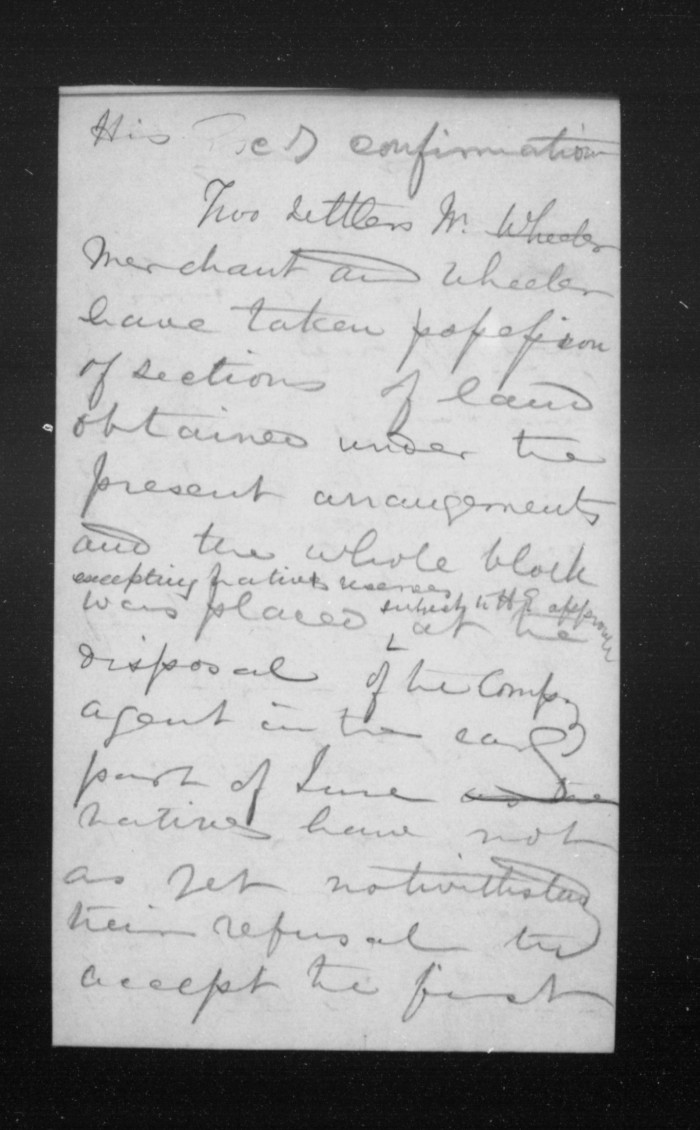 His confirmation
Two settlers Mr. Wheeler
Merchant and Wheeler
have taken possession
of sections of land
obtained under the
present arrangements
and the whole block
excepting natives reserves
subject to H E approval
was placed at the
disposal of the Compy
agent in the early
part of June as the
natives have not
as yet notwithstandg
their refusal to
accept the first